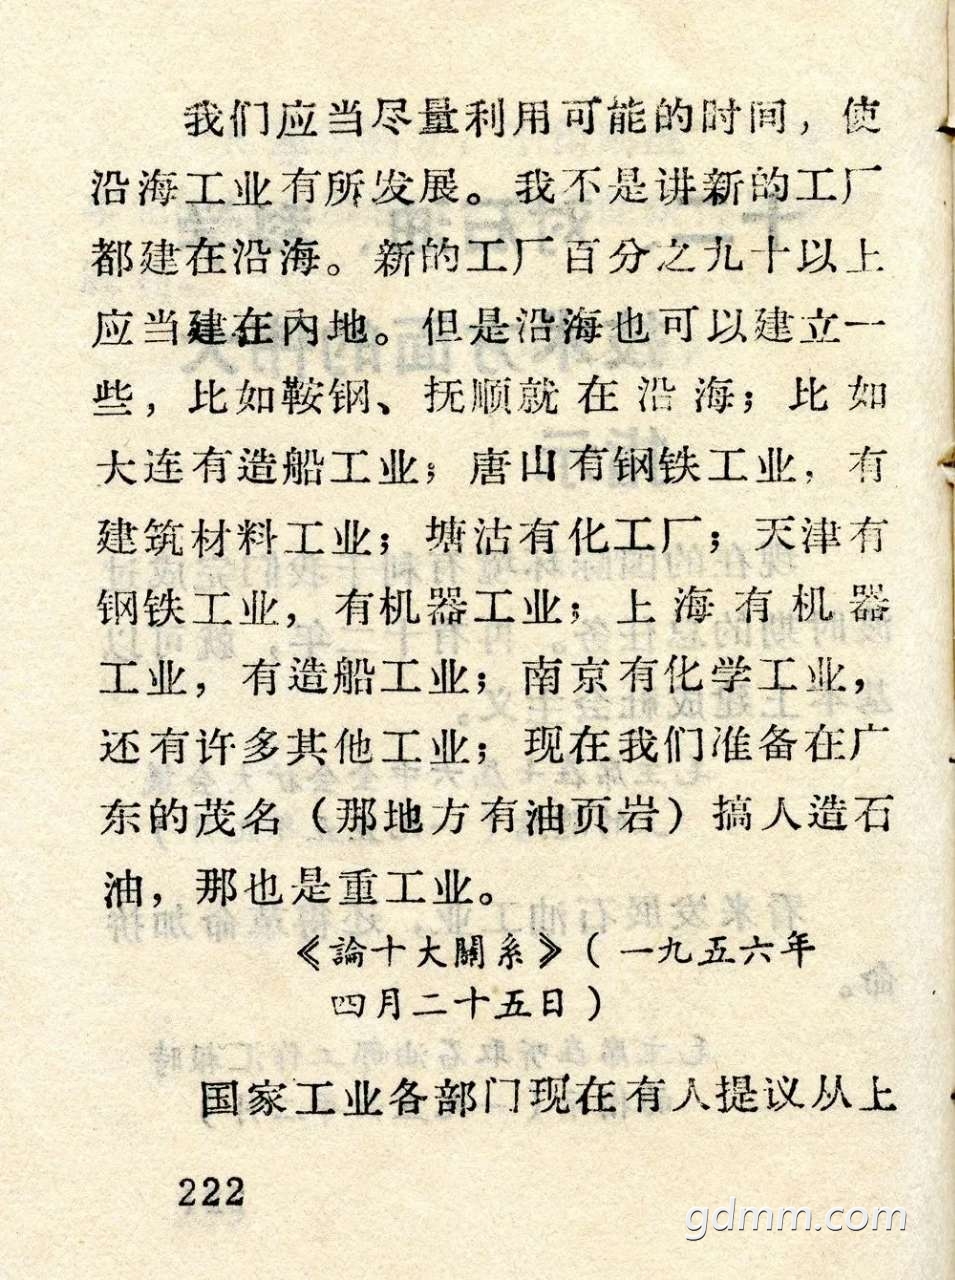 我们应当尽量利用可能的时间，使
沿海工业有所发展。我不是讲新的工厂
都建在沿海。新的工厂百分之九十以上
应当建在内地。但是沿海也可以建立一
些，比如鞍钢、抚顺就在沿海；比如
大连有造船工业；唐山有钢铁工业，有
建筑材料工业；塘沽有化工厂；天津有
钢铁工业，有机器工业；上海有机器
工业，有造船工业；南京有化学工业，
还有许多其他工业；现在我们准备在广
东的茂名（那地方有油页岩）搞人造石
油，那也是重工业。
《論十大關系》（一九五六年
四月二十五日）
国家工业各部门现在有人提议从上
222
gdmm.com